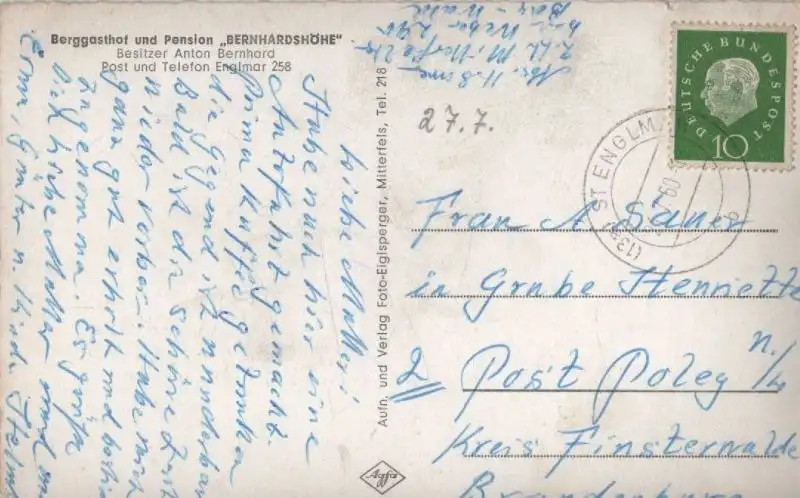 Berggasthof und Pension „BERNHARDSHÖHE"
Besitzer Anton Bernhard
Post und Telefon Englmar 258
Liebe Mutter!
Habe nach hier eine
Autofahrt gemacht.
Prima Kaffee getrunken
die Gegend ist wunderbar
Bald ist die schöne Zeit
wieder vorbei. Habe mich
ganz gut erholt und
genommen. Es grüßt
Dich liebe Mutter und
Erna, Günter u.
Aufn. und Verlag Foto-Eiglsperger, Mitterfels, Tel. 218
Agfa
Abs.
Mitterfels
bei Weber
27.7.
DEUTSCHE BUNDESPOST
10
ST ENGLM
(13
60
Frau A
in Grube Henriette
2 Post Poley n./L
Kreis Finsterwalde
Brandenburg